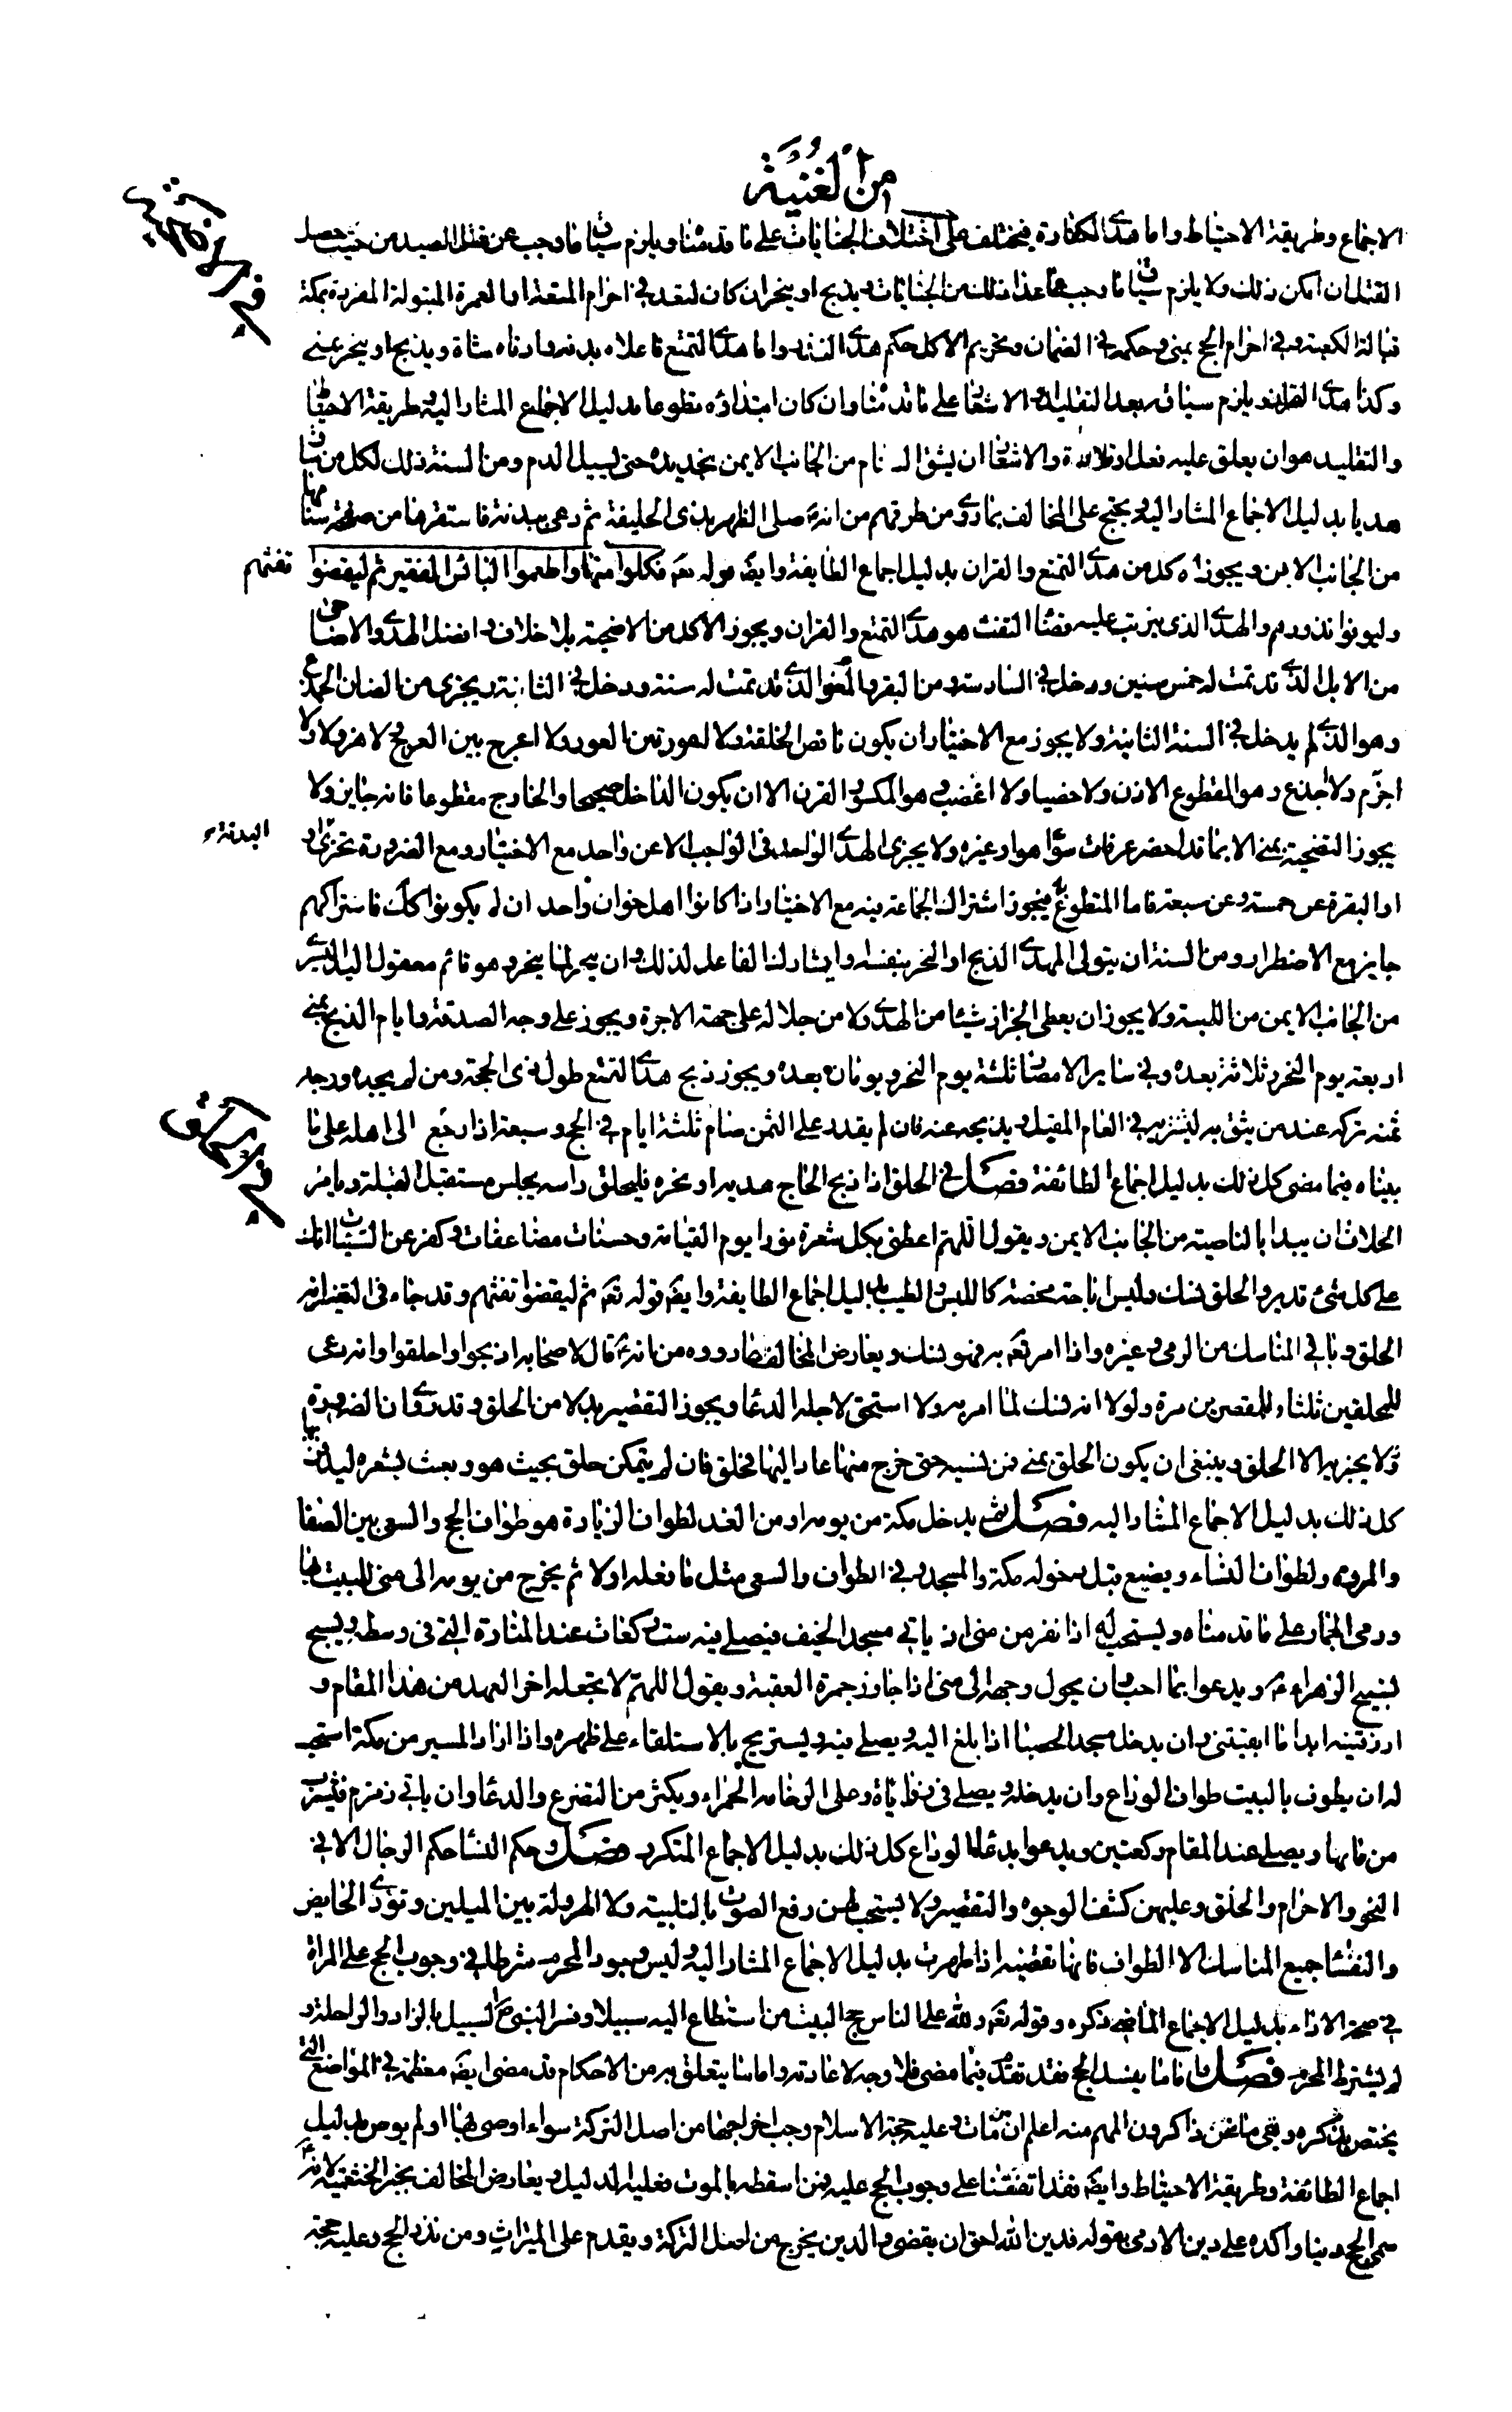 من الغُنْيَة
الاجماع وطريقة الاحتياط واما هدى الكفارة فيختلف على اختلاف الجنايات على ما قدمنا ويلزم سياق ما وجب عن قتل الصيد من حيث حصل
القتل ان امكن ذلك ولا يلزم سياق ما وجب عما عدا ذلك من الجنايات ويذبح او ينحر ان كان لتعد في احرام المتعة او العمرة المبتولة المفردة بمكة
قبالة الكعبة وفي احرام الحج بمنى وحكمه في الضمان وتحريم الاكل حكم هدى النذر واما هدى التمتع فاعلاه بدنة وادناه شاة ويذبح او ينحر بمنى
وكذا هدى القران ويلزم سياقه بعد التقليد او الاشعار على ما قدمنا وان كان ابتداؤه تطوعا بدليل الاجماع المشار اليه وطريقة الاحتياط
والتقليد هو ان يعلق عليه نعل او مزادة والاشعار ان يشق السنام من الجانب الايمن بحديدة حتى يسيل الدم ومن السنة ذلك لكل من ساق
هديا بدليل الاجماع المشار اليه ويحتج على المخالف بما روى من طرقهم من انه ص صلى الظهر بذي الحليفة ثم دعى ببدنة فاشعرها من صفحة سنامها
من الجانب الايمن ويجوز الاكل من هدى التمتع والقران بدليل اجماع الطايفة وايضا قوله تعه فكلوا منها واطعموا البائس الفقير ثم ليقضوا تفثهم
وليوفوا نذورهم والهدى الذي يترتب عليه قضاء التفث هو هدى التمتع والقران ويجوز الاكل من الاضحية بلا خلاف وافضل الهدى والاضاحي
من الابل الذي قد تمت له خمس سنين ودخل في السادسة ومن البقر والمعز الذي قد تمت له سنة ودخل في الثانية ويجزي من الضان الجذع
وهو الذي لم يدخل في السنة الثانية ولا يجوز مع الاختيار ان يكون ناقص الخلقة ولا اعور بين العور ولا اعرج بين العرج لا هزولا ولا
اجزم ولا اجذع وهو المقطوع الاذن ولا خصيا ولا اعضب وهو المكسور القرن الا ان يكون الداخل صحيحا والخارج مقطوعا فانه جايز ولا
يجوز التضحية بمنى الا بما قد احضر عرفات سواء هو او غيره ولا يجزي الهدى الواحد في الواجب الا عن واحد مع الاختيار ومع الضرورة تجزى البدنة
او البقرة عن خمسة وعن سبعة فاما المتطوع به فيجوز اشتراك الجماعة فيه مع الاختيار اذا كانوا اهل خوان واحد ان لم يكونوا كذلك فاشتراكهم
جايز مع الاضطرار ومن السنة ان يتولى المهدى الذبح او النحر بنفسه او يشارك الفاعل لذلك وان ينحر ما ينحر وهو قائم معقول اليد اليسرى
من الجانب الايمن من اللبة ولا يجوز ان يعطى الجزار شيئا من الهدى ولا من جلاله على جهة الاجرة ويجوز على وجه الصدقة وايام الذبح بمنى
اربعة يوم النحر وثلاثة بعده وفي سائر الامصار ثلثة يوم النحر ويومان بعده ويجوز ذبح هدى التمتع طول ذى الحجة ومن لم يجده ووجد
ثمنه تركه عند من يثق به ليشتريه في العام المقبل ويذبحه عنه فان لم يقدر على الثمن صام ثلثة ايام في الحج وسبعة اذا رجع الى اهله على ما
بيناه فيما مضى كل ذلك بدليل اجماع الطائفة فصل في الحلق اذا ذبح الحاج هديه او نحره فليحلق راسه يجلس مستقبل القبلة ويامر
الحلاق ان يبدا بالناصية من الجانب الايمن ويقول اللهم اعطني بكل شعرة نورا يوم القيامة وحسنات مضاعفات وكفر عن السيئات انك
على كل شئ قدير والحلق نسك وليس اباحة محضة كاللبس والطيب بدليل اجماع الطايفة وايضا قوله تعه ثم ليقضوا تفثهم وقد جاء في التفسير انه
الحلق وباقي المناسك من الرمي وغيره واذا امر تعه به فهو نسك ويعارض المخالف بما رووه من انه ص قال لاصحابه اذبحوا واحلقوا وانه دعى
للمحلقين ثلثا وللمقصرين مرة ولولا انه نسك لما امر به ولا استحق لاجله الدعا ويجوز التقصير بدلا من الحلق وقد روى ان الصرورة
لا يجزيه الا الحلق وينبغي ان يكون الحلق بمنى فمن نسيه حتى خرج منها عاد اليها فحلق فان لم يتمكن حلق بحيث هو وبعث بشعره ليدفن بها
كل ذلك بدليل الاجماع المشار اليه فصل ثم يدخل مكة من يومه او من الغد لطواف الزيارة هو طواف الحج والسعي بين الصفا
والمروة ولطواف النساء ويصنع قبل دخوله مكة والمسجد وفي الطواف والسعي مثل ما فعله اولا ثم يخرج من يومه الى منى للمبيت بها
ورمى الجمار على ما قدمناه ويستحب له اذا نفر من منى ان ياتي مسجد الخيف فيصلي فيه ست ركعات عند المنارة التي في وسطه ويسبح
تسبيح الزهراء ع ويدعوا بما احب وان يحول وجهه الى منى اذا جاوز جمرة العقبة ويقول اللهم لا تجعله اخر العهد من هذا المقام و
ارزقنيه ابدا ما ابقيتني وان يدخل مسجد الحصبا اذا بلغ اليه ويصلي فيه ويستريح بالاستلقاء على ظهره واذا اراد المسير من مكة استحب
له ان يطوف بالبيت طواف الوداع وان يدخله ويصلي في زواياه وعلى الرخامة الحمراء ويكثر من التضرع والدعا وان ياتي زمزم فيشرب
من مائها ويصلي عند المقام ركعتين ويدعوا بدعاء الوداع كل ذلك بدليل الاجماع المتكرر فصل وحكم النسا حكم الرجال الا في
النحر والاحرام والحلق وعليهن كشف الوجوه والتقصير ولا يستحب لهن رفع الصوت بالتلبية ولا الهرولة بين الميلين وتؤدى الحايض
والنفسا جميع المناسك الا الطواف فانها تقضيه اذا طهرت بدليل الاجماع المشار اليه وليس وجود المحرم شرطا في وجوب الحج على المراة
في صحة الاداء بدليل الاجماع الماضي ذكره وقوله تعه ولله على الناس حج البيت من استطاع اليه سبيلا وفسر النبي ص السبيل بالزاد والراحلة و
لم يشترط المحرم فصل فاما ما يفسد الحج فقد تقدم فيما مضى فلا وجه لاعادته واما ما يتعلق به من الاحكام قد مضى ايضا معظمه في المواضع التي
يختص بذكره وبقي ما نحن ذاكرون المهم منه اعلم ان من مات وعليه حجة الاسلام وجب اخراجها من اصل التركة سواء اوصى بها او لم يوص بدليل
اجماع الطائفة وطريقة الاحتياط وايضا فقد اتفقنا على وجوب الحج عليه فمن اسقطه بالموت فعليه الدليل ويعارض المخالف بخبر الخثعمية لانه ص
سمى الحج دينا واكده على دين الادمي بقوله فدين الله احق ان يقضى والدين يخرج من اصل التركة ويقدم على الميراث ومن نذر الحج وعليه حجة